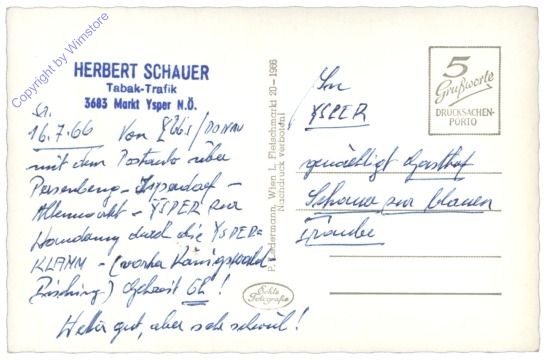 Copyright by Wimstore
HERBERT SCHAUER
Tabak-Trafik
3683 Markt Ysper N.Ö.
Sa.
16.7.66 Von YBBS/DONAU
mit dem Postauto über
Persenbeug - Isperdorf -
Altenmarkt - YSPER zur
Wanderung durch die YSPER-
KLAMM - (vorher Königswald
) Gehzeit 6h!
Wetter gut, aber sehr schwül!
P. Ledermann, Wien I., Fleischmarkt 20 - 1966
Nachdruck verboten!
Echte
Fotografie
5
Grußworte
DRUCKSACHEN-
PORTO
In
YSPER
genächtigt Gasthof
Schauer zur blauen
Traube